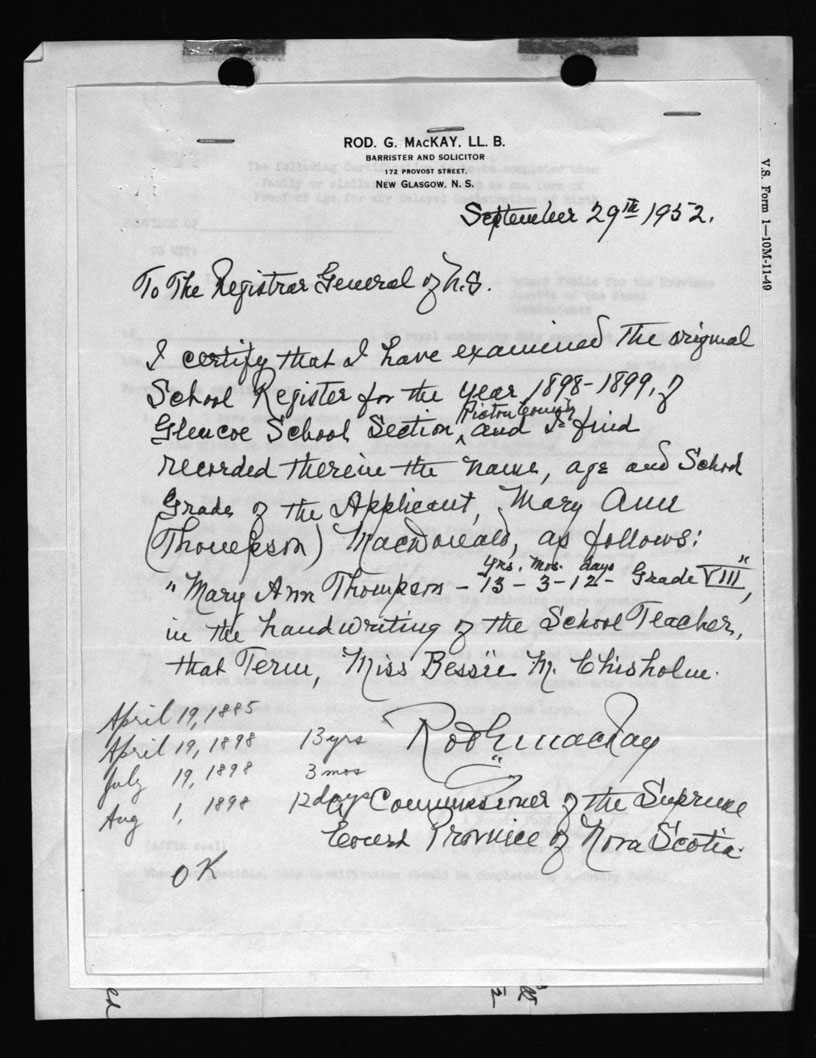 ROD. G. MACKAY, LL. B.
BARRISTER AND SOLICITOR
172 PROVOST STREET,
NEW GLASGOW, N. S.
V.S. Form 1—10M-11-49
September 29th 1952.
To The Registrar General of N.S.
I certify that I have examined the original
School Register for the year 1898-1899, of
Glencoe School Section, Pictou County and I find
recorded therein the name, age and School
Grade of the Applicant, Mary Ann
(Thompson) MacDonald, as follows:
yrs. mos. days
"Mary Ann Thompson - 13 - 3 - 12 - Grade VIII",
in the handwriting of the School Teacher,
that Term, Miss Bessie M. Chisholm.
April 19, 1885
April 19, 1898 13 yrs
July 19, 1898 3 mos
Aug 1, 1898 12 days
OK
Rod G MacKay
A Commissioner of the Supreme
Court Province of Nova Scotia.